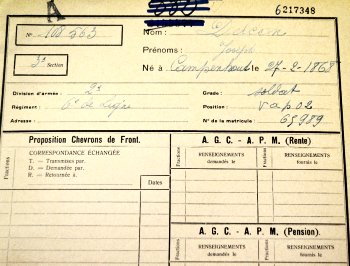 A
6217348
N° 108563 Nom :
3e Section Prénoms : Joseph
Né à Campenhout le 27-2-1868
Division d'armée : 2e Grade : soldat
Régiment : 6e de Ligne Position :
Adresse : N° de la matricule : 65989
Proposition Chevrons de Front.
CORRESPONDANCE ÉCHANGÉE
T. — Transmises par.
D. — Demandée par.
R. — Retournée à.
Fractions
Dates
A. G. C. - A. P. M. (Rente)
Fractions
RENSEIGNEMENTS
demandés le
Fractions
RENSEIGNEMENTS
fournis le
A. G. C. - A. P. M. (Pension).
RENSEIGNEMENTS
demandés le
RENSEIGNEMENTS
fournis le